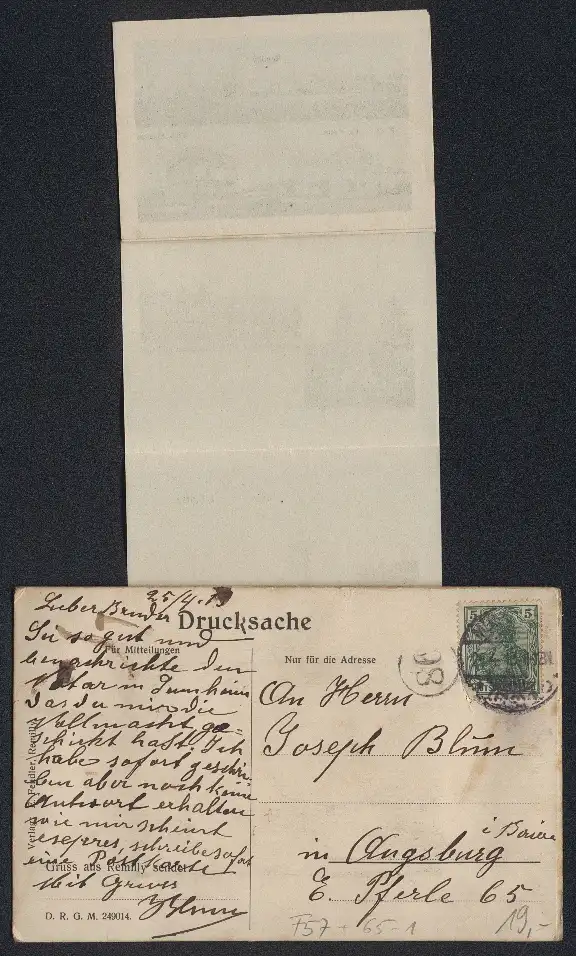 25/4.13
Lieber Bruder
Drucksache
Sei so gut und
Für Mittheilungen
benachrichte den
Notar in
das du mir die
Vollmacht ge=
schickt hast. Ich
habe sofort geschri-
ben aber noch keine
Antwort erhalten
wie mir scheint
schreibe sofort
eine Postkarte
Gruss aus Remilly sendet
Mit Gruss
JBlum
D. R. G. M. 249014.
Verlag Pendler, Remilly
Nur für die Adresse
5 5
98
An Herrn
Joseph Blum
in Augsburg
E. Pferle 65
F57 + 65-1
19,-